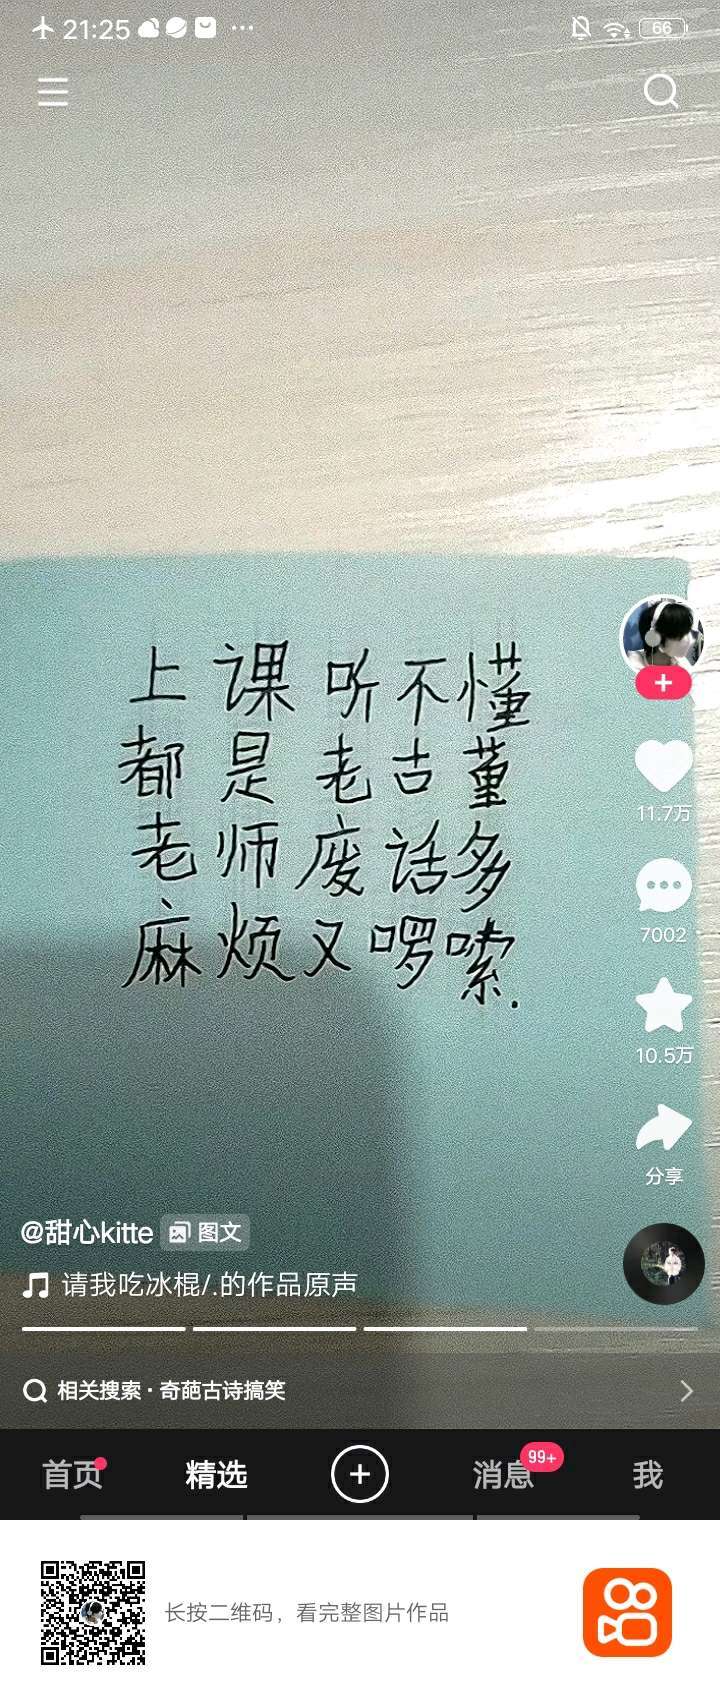 21:25
66
上课听不懂
都是老古董
老师废话多
麻烦又啰嗦.
11.7万
7002
10.5万
分享
@甜心kitte 图文
请我吃冰棍/.的作品原声
相关搜索·奇葩古诗搞笑
首页 精选 消息 99+ 我
长按二维码，看完整图片作品